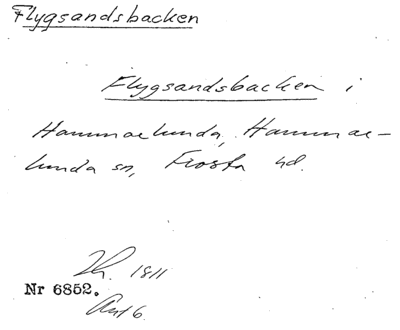 Flygsandsbacken
Flygsandsbacken i
Hammarlunda, Hammar-
lunda sn, Frosta hd.
1811
Nr 6852.
6.